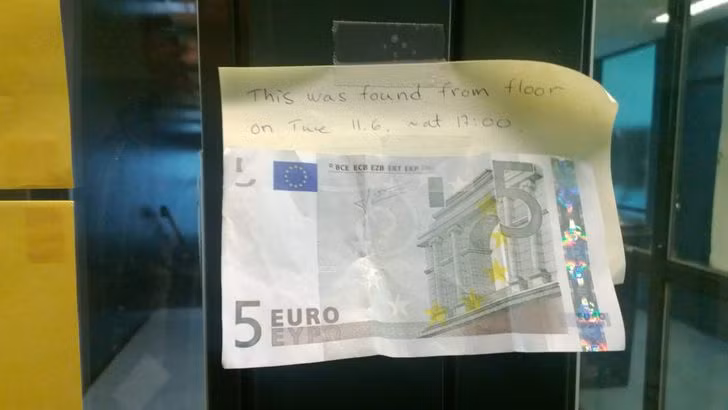 This was found from floor
on Tue 11.6. at 17:00
BCE ECB EZB EKT EKP
5
5 EURO
ΕΥΡΩ